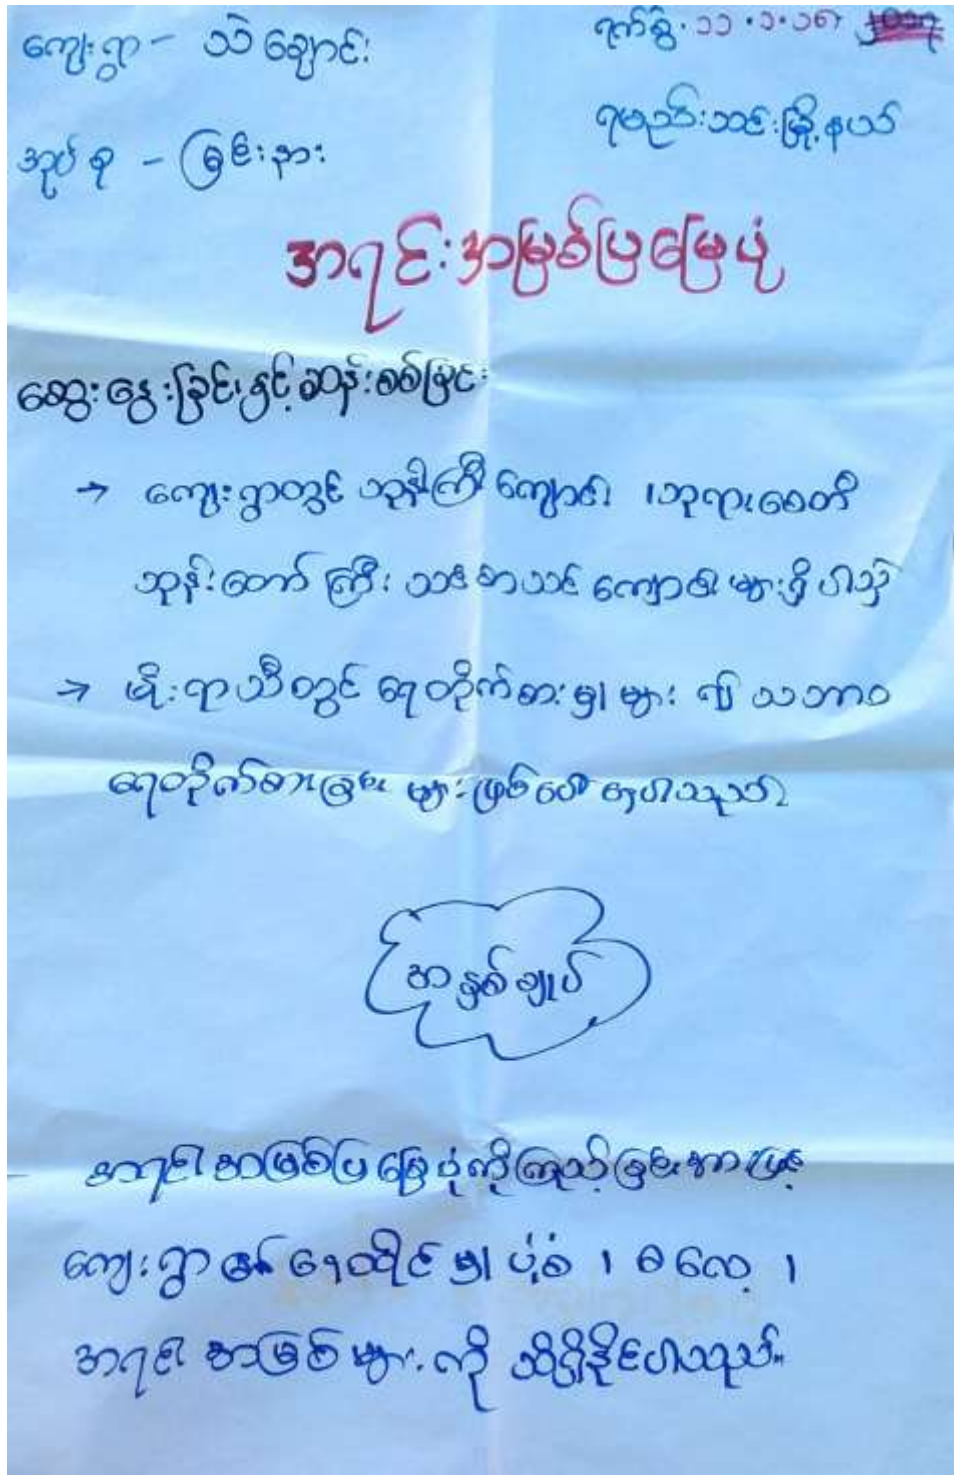 ကျေးရွာ - သဲချောင်း
ရက်စွဲ. ၁၁.၁.၁၆
အုပ်စု - မြင်းနား
ရမည်းသင်းမြို့နယ်
အရင်းအမြစ်ပြမြေပုံ
ဆွေးနွေးခြင်းနှင့်ဆန်းစစ်ခြင်း
→ ကျေးရွာတွင် ဘုန်းကြီးကျောင်း ၊ဘုရားစေတီ
ဘုန်းတော်ကြီးသင်စာသင်ကျောင်းများရှိပါသည်
→ မိုးရာသီတွင် ရေတိုက်စားမှုများ ၎င်း သဘာဝ
ရေတိုက်စားခြင်းများဖြစ်ပေါ်နေပါသည်။
အနှစ်ချုပ်
အရင်းအမြစ်ပြမြေပုံကိုကြည့်ခြင်းအားဖြင့်
ကျေးရွာ၏နေထိုင်မှုပုံစံ ၊ ဓလေ့ ၊
အရင်းအမြစ်များကို သိရှိနိုင်ပါသည်။